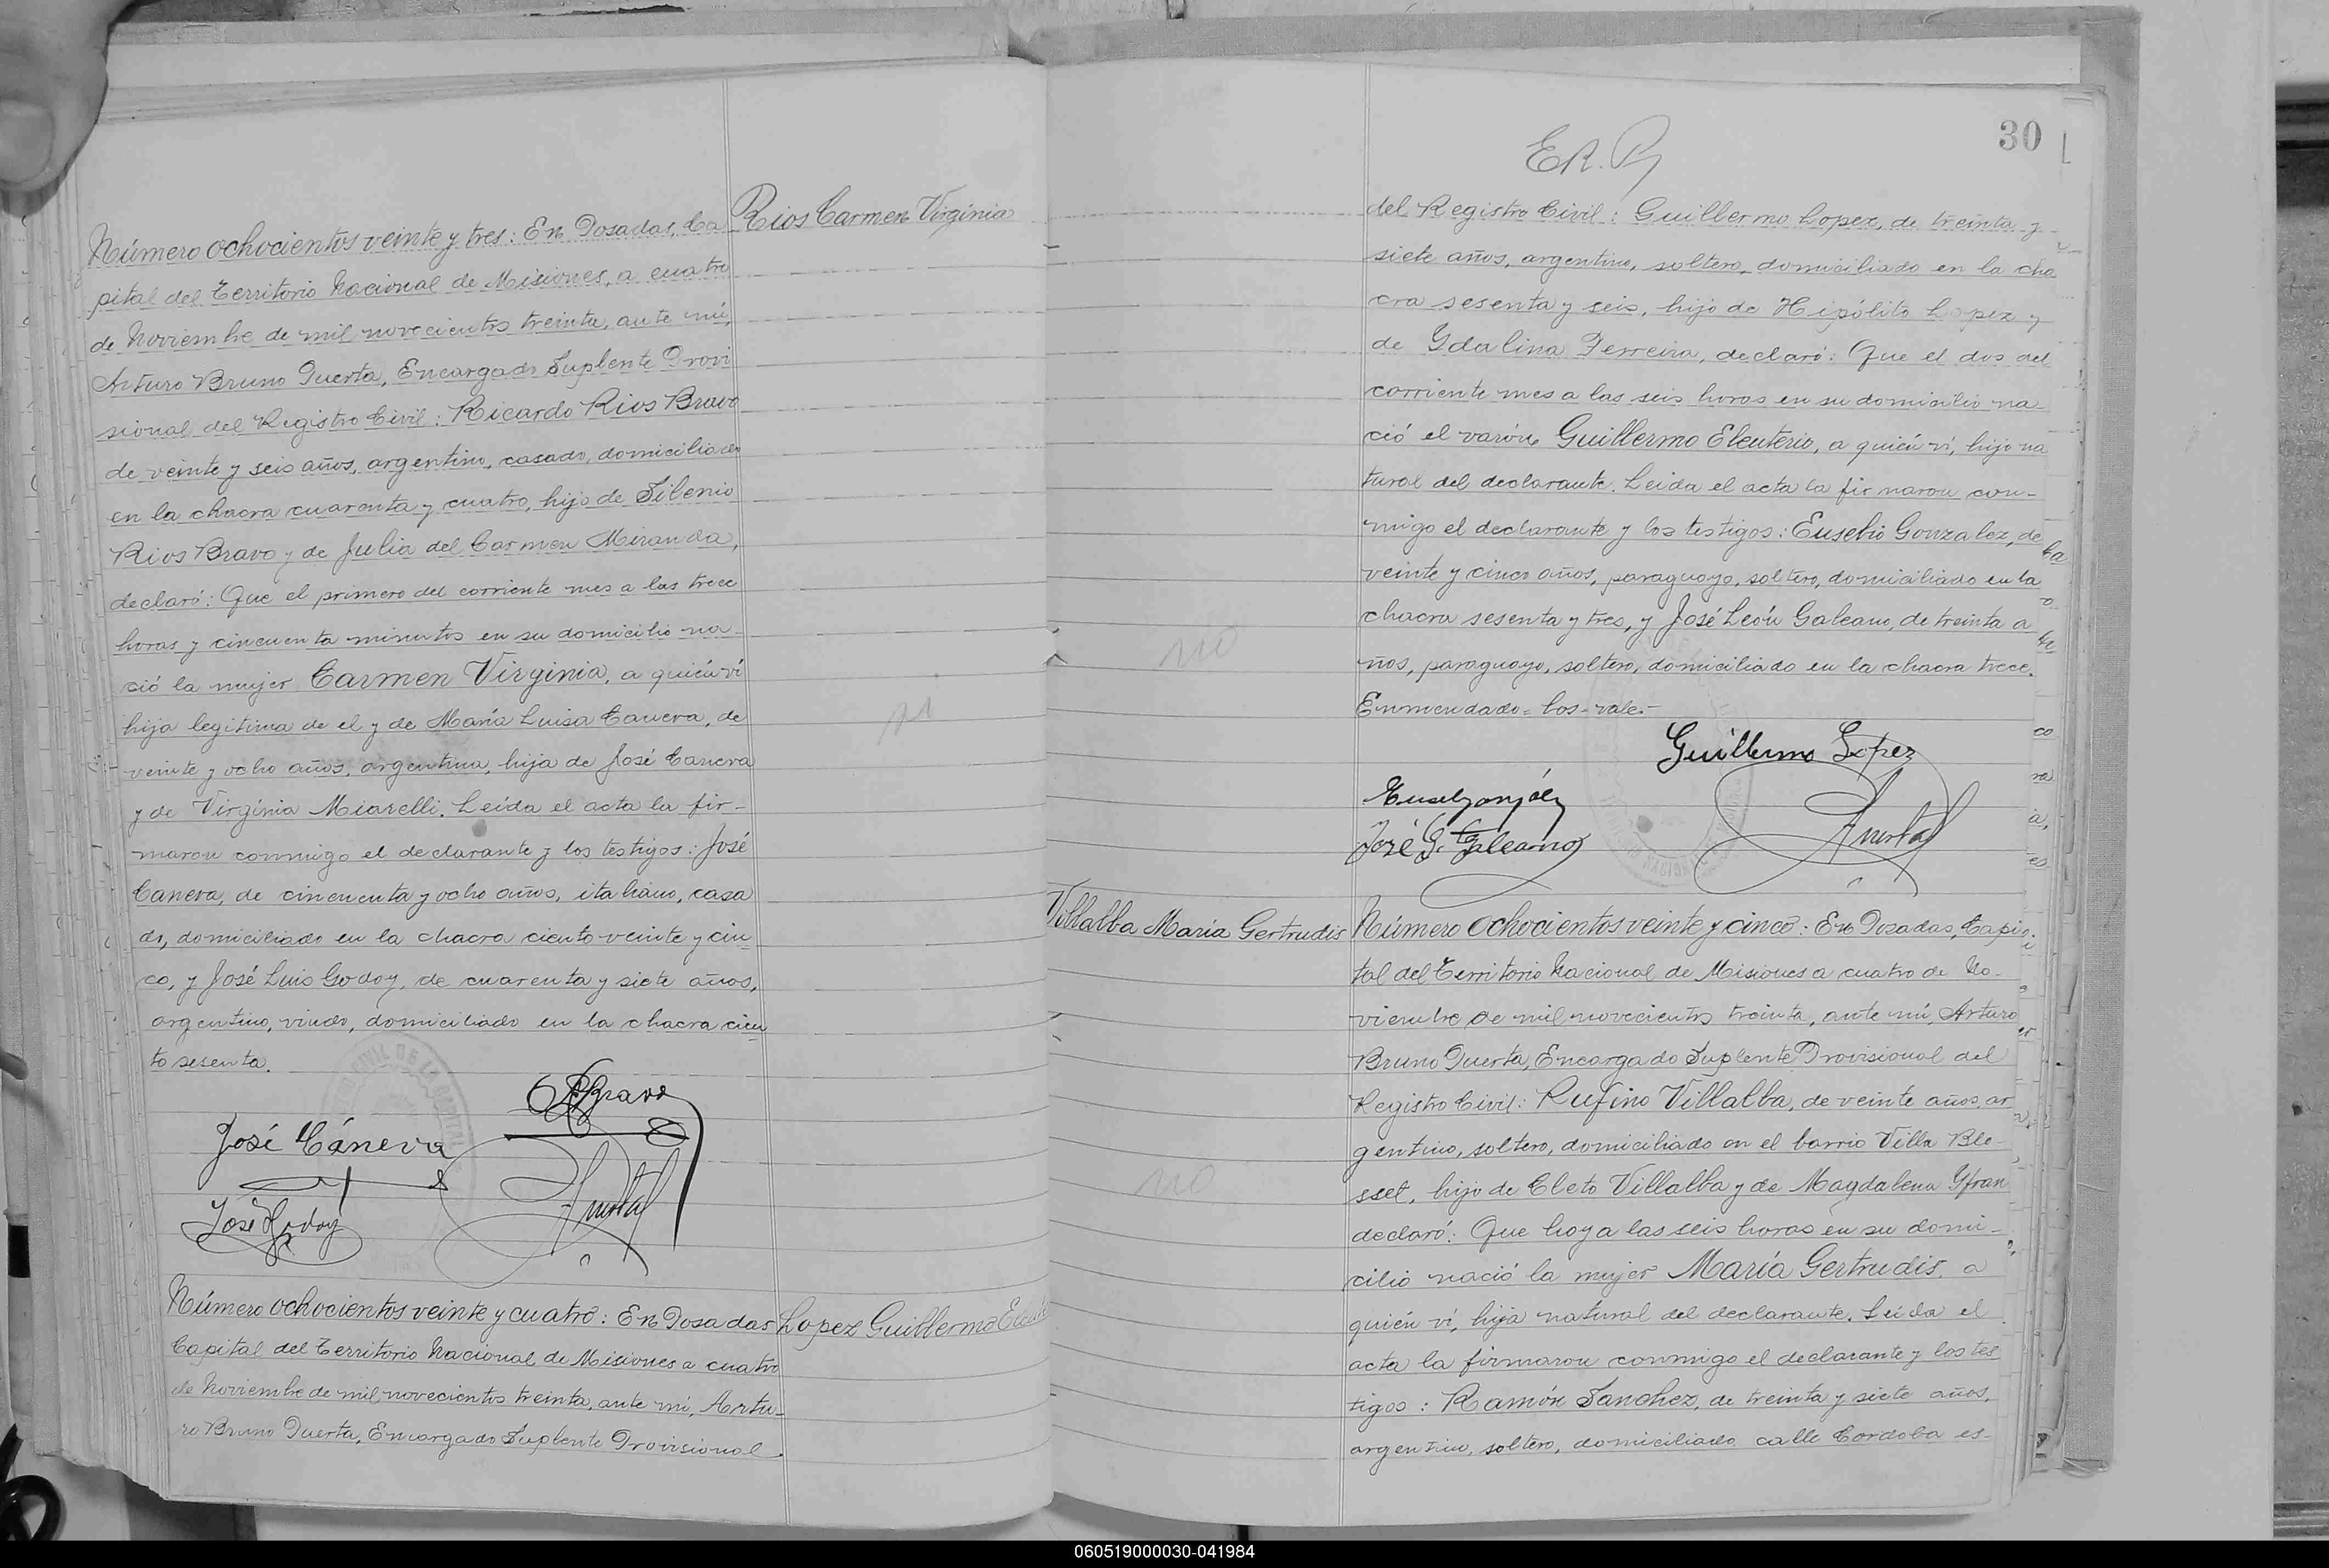 Rios Carmen Virginia
Número ochocientos veinte y tres: En Posadas, Ca
pital del Territorio Nacional de Misiones, a cuatro
de Noviembre de mil novecientos treinta, ante mí,
Arturo Bruno Puerta, Encargado Suplente Provi
sional del Registro Civil: Ricardo Rios Bravo
de veinte y seis años, argentino, casado, domiciliado
en la chacra cuarenta y cuatro, hijo de Silenio
Rios Bravo y de Julia del Carmen Miranda,
declaró: Que el primero del corriente mes a las trece
horas y cincuenta minutos en su domicilio na-
ció la mujer Carmen Virginia, a quién ví
hija legitima de el y de María Luisa Canera, de
veinte y ocho años, argentina, hija de José Canera
y de Virginia Miarelli. Leída el acta la fir-
maron conmigo el declarante y los testigos: José
Canera, de cincuenta y ocho años, italiano, casa
do, domiciliado en la chacra ciento veinte y cin
co, y José Luis Godoy, de cuarenta y siete años,
argentino, viudo, domiciliado en la chacra cien
to sesenta.
RRBravo
José Cánera
José Godoy
Número ochocientos veinte y cuatro: En Posadas
Lopez Guillermo
Capital del Territorio Nacional de Misiones a cuatro
de Noviembre de mil novecientos treinta, ante mí, Artu-
ro Bruno Puerta, Encargado Suplente Provisional
30
E.R.
del Registro Civil: Guillermo Lopez, de treinta y
siete años, argentino, soltero, domiciliado en la cha
cra sesenta y seis, hijo de Hipólito Lopez y
de Idalina Ferreira, declaró: Que el dos del
corriente mes a las seis horas en su domicilio na-
ció el varón Guillermo Eleuterio, a quién ví, hijo na
tural del declarante. Leida el acta la firmaron con-
migo el declarante y los testigos: Eusebio Gonzalez, de
veinte y cinco años, paraguayo, soltero, domiciliado en la
chacra sesenta y tres, y José León Galeano, de treinta a
ños, paraguayo, soltero, domiciliado en la chacra trece.
Enmendado=los-vale.-
no
Guillermo Lopez
José G. Galeano
Villalba María Gertrudis
Número ochocientos veinte y cinco: En Posadas, Capi-
tal del Territorio Nacional de Misiones a cuatro de No-
viembre de mil novecientos treinta, ante mí, Arturo
Bruno Puerta, Encargado Suplente Provisional del
Registro Civil: Rufino Villalba, de veinte años, ar
gentino, soltero, domiciliado en el barrio Villa Ble-
sset, hijo de Cleto Villalba y de Magdalena Yfran
declaró: Que hoy a las seis horas en su domi-
cilio nació la mujer María Gertrudis, a
quién ví, hija natural del declarante. Leida el
acta la firmaron conmigo el declarante y los tes
tigos: Ramón Sanchez, de treinta y siete años,
argentino, soltero, domiciliado calle Cordoba es-
no
060519000030-041984